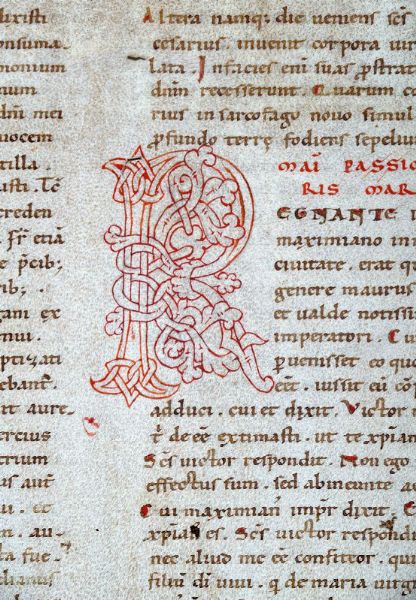 luxisti
onsuma
monium
num
dñi mei
uocem
tilla.
usti. Tč
creden
. Fr̄ etiā
e p̄cib;
rib;
gam ex
nui.
ptizati
ebant.
it aure.
rcius
trium
us aut̄
u. et
n. au.
ta fue.
dianus
Altera namq; die ueniens sc̄s
cesarius. inuenit corpora ui
lata. Infacies eni suas p̄strat
dnm̄ recesserunt. Quarum co
rius in sarcofago nouo simul
p̄fundo terrę fodiens sepeliu
MAĪI PASSIO
RIS MAR
REGNANTE
maximiano in
ciuitate. erat q
genere maurus
et ualde notissi
imperatori. Cu
puenisset eo quo
eēt. iussit eū co
adduci. cui et dixit. Victor
t̄ de eē extimasti. ut te xp̄ian
Sc̄s uictor respondit. Non ego
effectus sum. sed abineunte ae
Cui maximian imp̄r dixit. E
xp̄ian es. Sc̄s uictor respondi
nec aliud me eē confiteor. qu
filiū dī uiui. q̄ de maria uirg